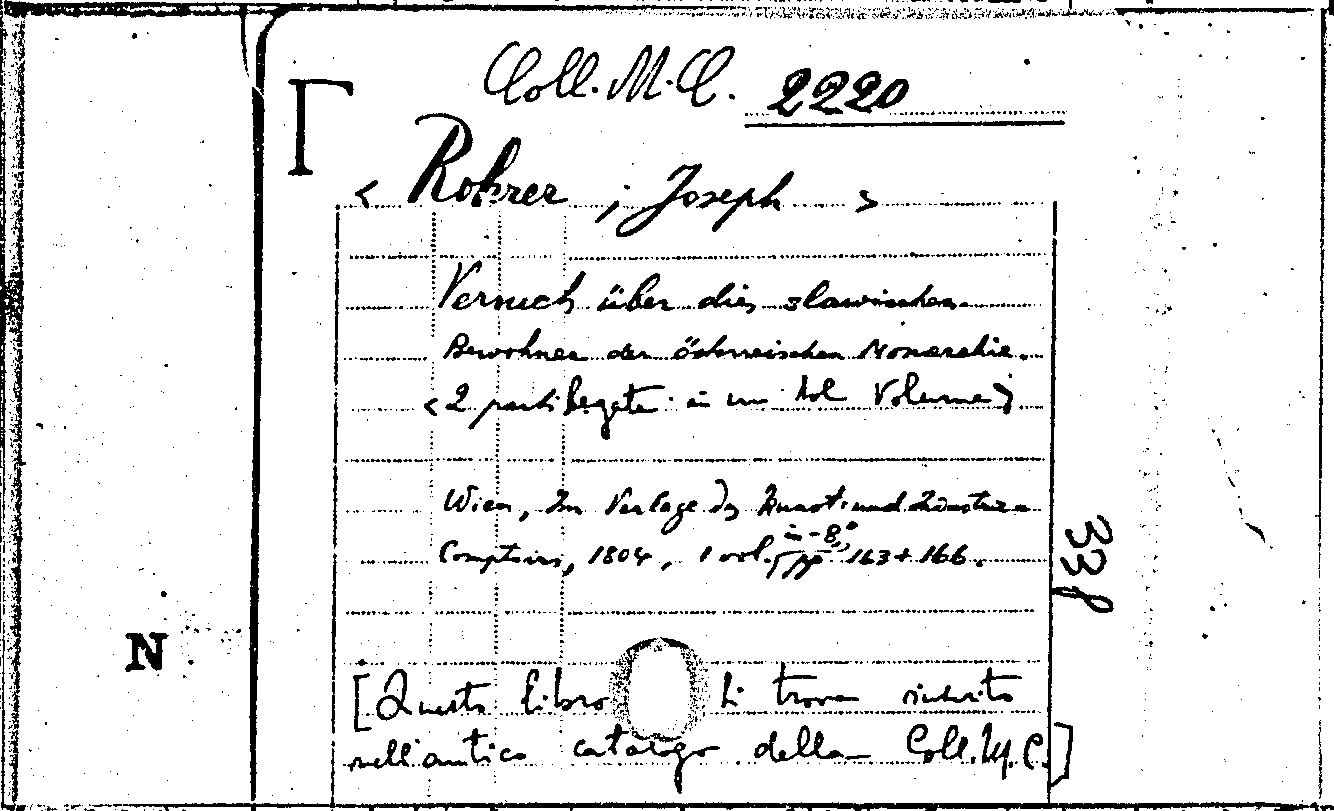 Coll. M. C. 2220
Γ
< Rohrer, Joseph >
Versuch über die slawischen
Bewohner der österreischen Monarchie.
<2 parti legate in un sol Volume>
Wien, Im Verlage des Kunst- und Industrie
Comptoirs, 1804, 1 vol. in-8°, pp. 163+166.
338
N
[Questo libro si trova inserito
nell'antico catalogo della Coll. M. C.]